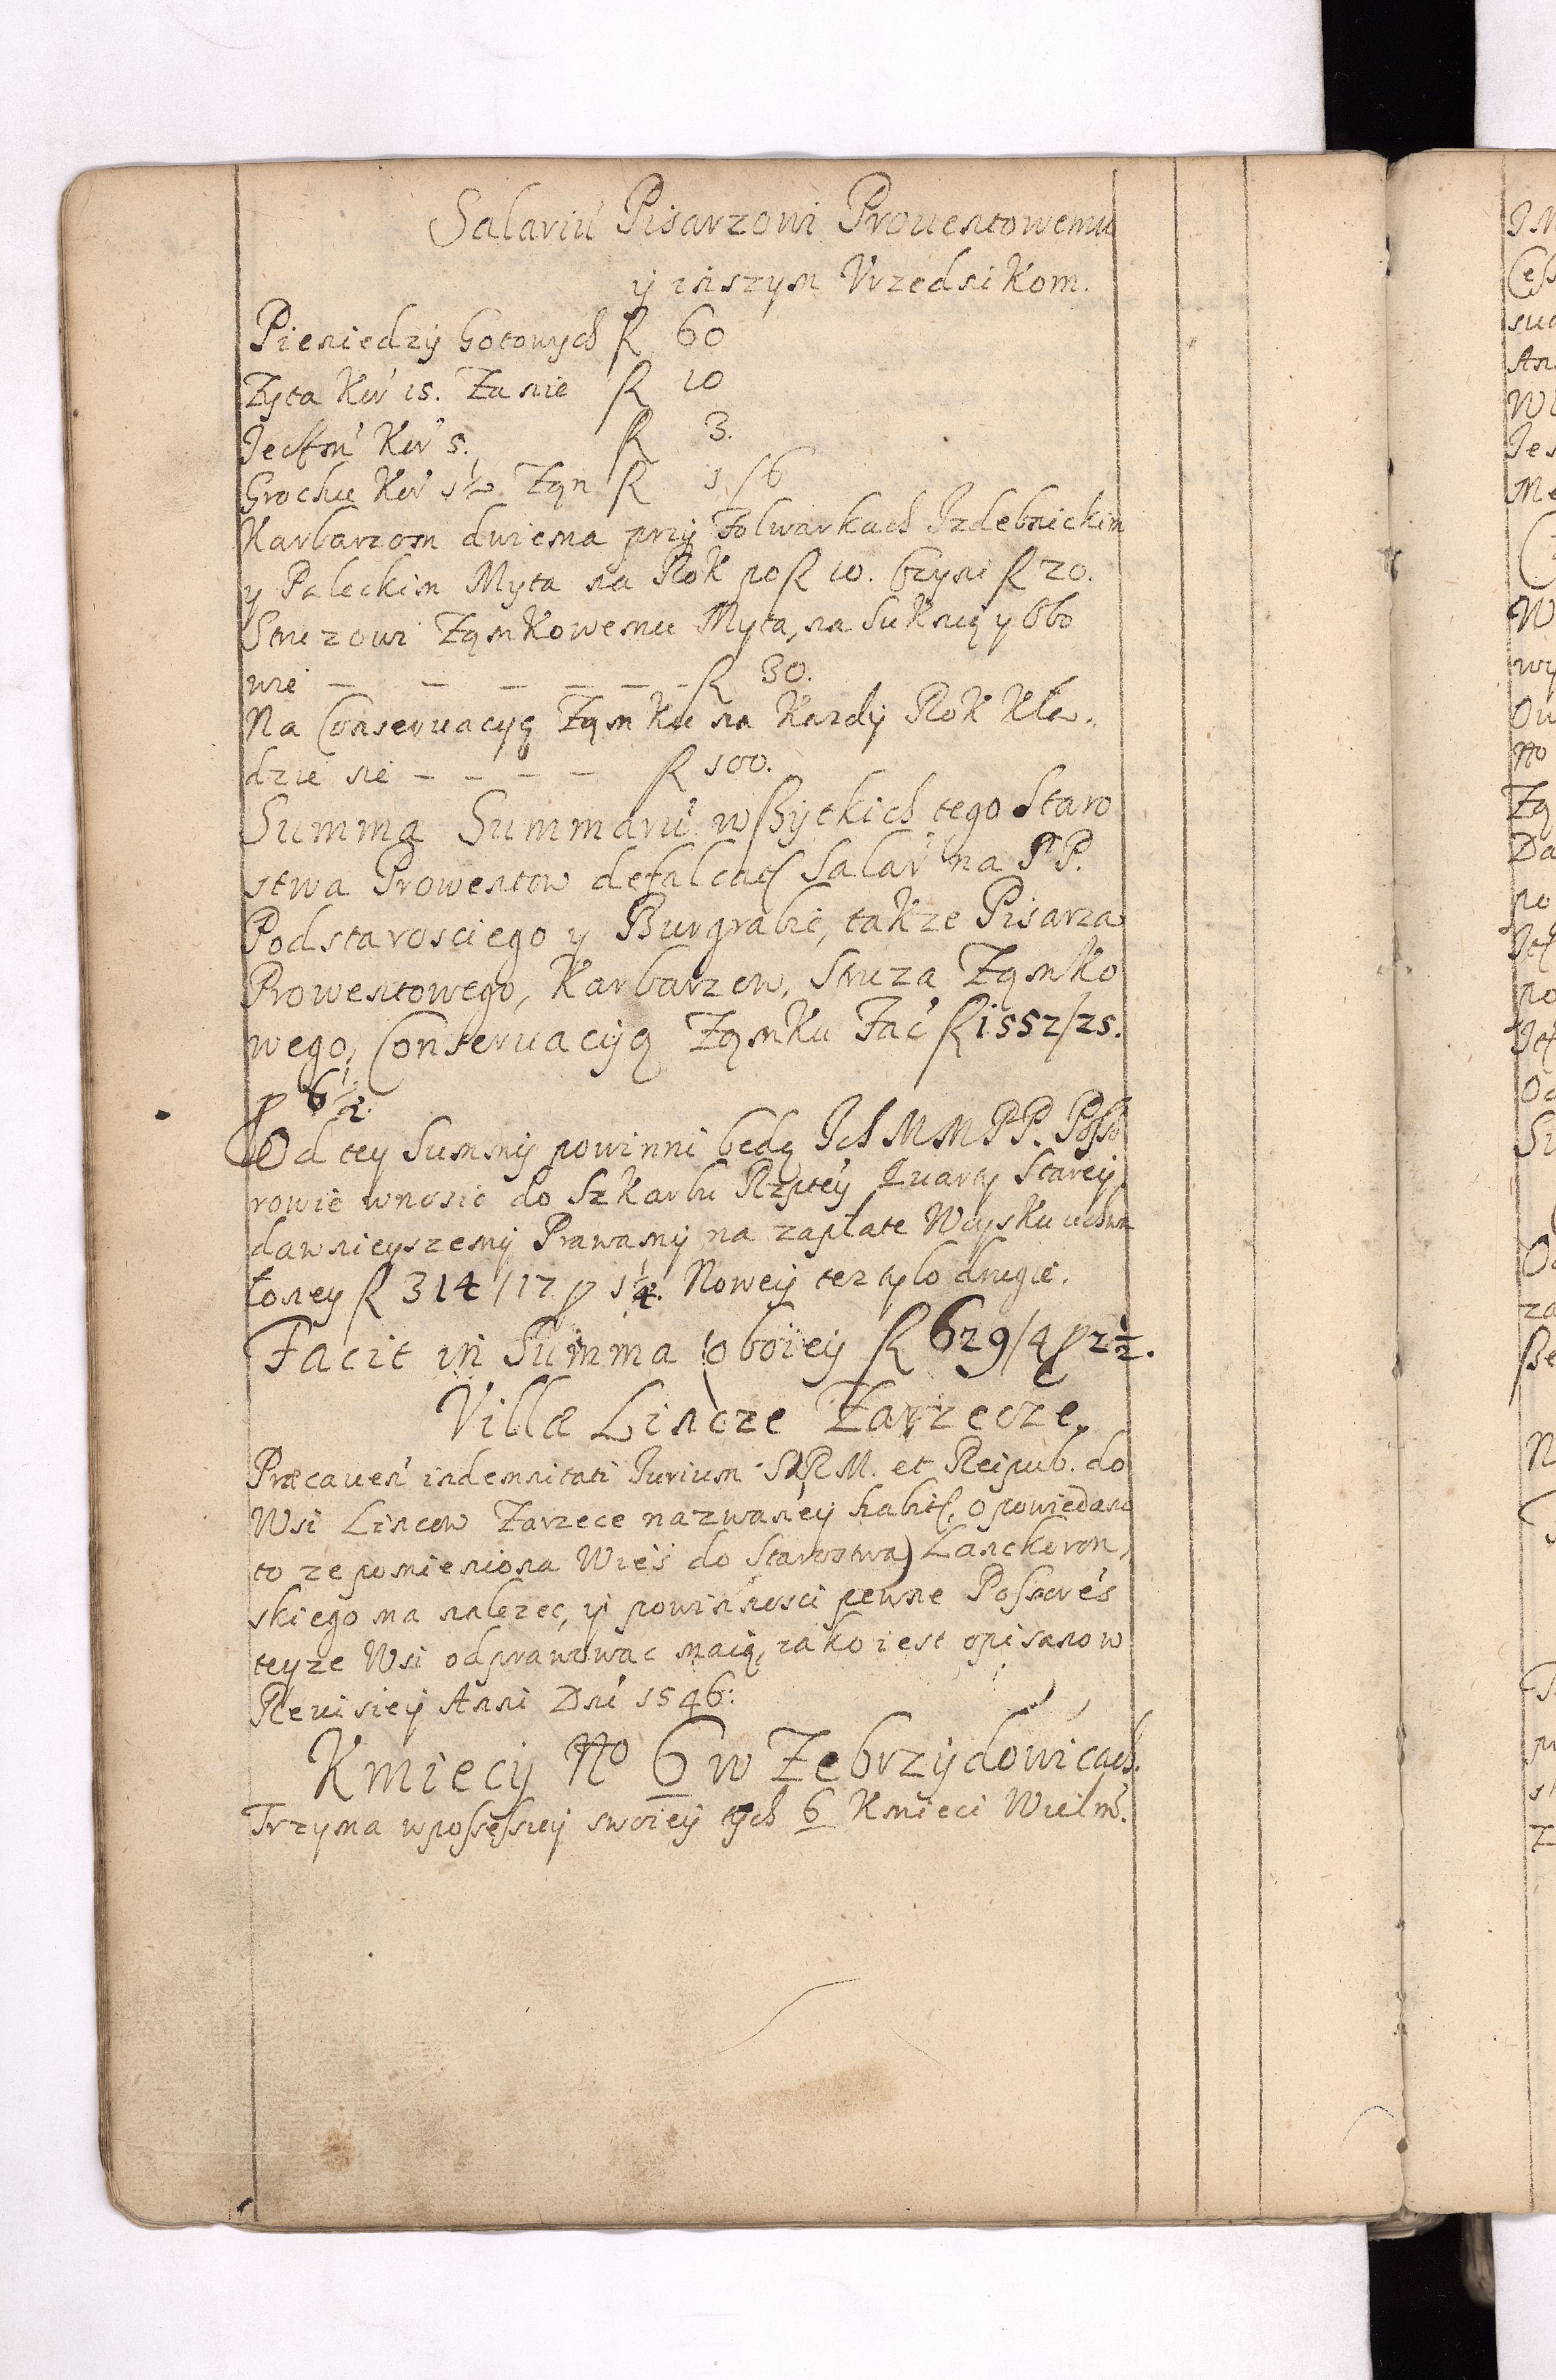 Salariu Pisarzowi Prouentowemu
y inszym Vrzednikom.
Pieniedzy Gotowych fl 60
Zyta Kor 15. Za nie fl 10
Jeczm Kor 5. fl 3.
Grochu Kor 1½ Zan fl 1/6
Karbarzom dwiema przy Folwarkach Izdebnickim
y Paleckim Myta na Rok po fl 10. czyni fl 20.
Struzowi Zamkowemu Myta, na Suknią y Obo
wie — — — — — — fl 30.
Na Conseruacyą Zamku na Kazdy Rok Kła-
dzie sie — — — — fl 100.
Summa Summaru wszytkich tego Staro
stwa Prowentow defalcat Salar na PP.
Podstarosciego y Burgrabie, takze Pisarza
Prowentowego, Karbarzow, Struza Zamko
wego, Conseruacyą Zamku Fac fl 1552/25.
p 6½.
Od tey Summy powinni będą Ich M M PP. Posso
rowie wnosic do Szkarbu Rzptey Quarty Starey
dawnieyszemy Prawamy na zapłate Woysku uchwa
łoney fl 314/17 p 1¼. Nowey tez tylo drugie.
Facit in Summa oboiey fl 629/4 p 2½.
Villa Lincze Zarzecze.
Præcauen indemnitati Jurium S R M. et Reipub. do
Wsi Lincow Zarzece nazwaney habit, opowiedano
to ze pomieniona Wieś do Starostwa Lanckoron,
skiego ma nalezec, y powinnosci pewne Possores
teyze Wsi odprawowac maią, iako iest opisano w
Reuisiey Anni Dni 1546:
Kmiecy No 6 w Zebrzydowicach.
Trzyma w possessiey swoiey tych 6 Kmieci Wielm.